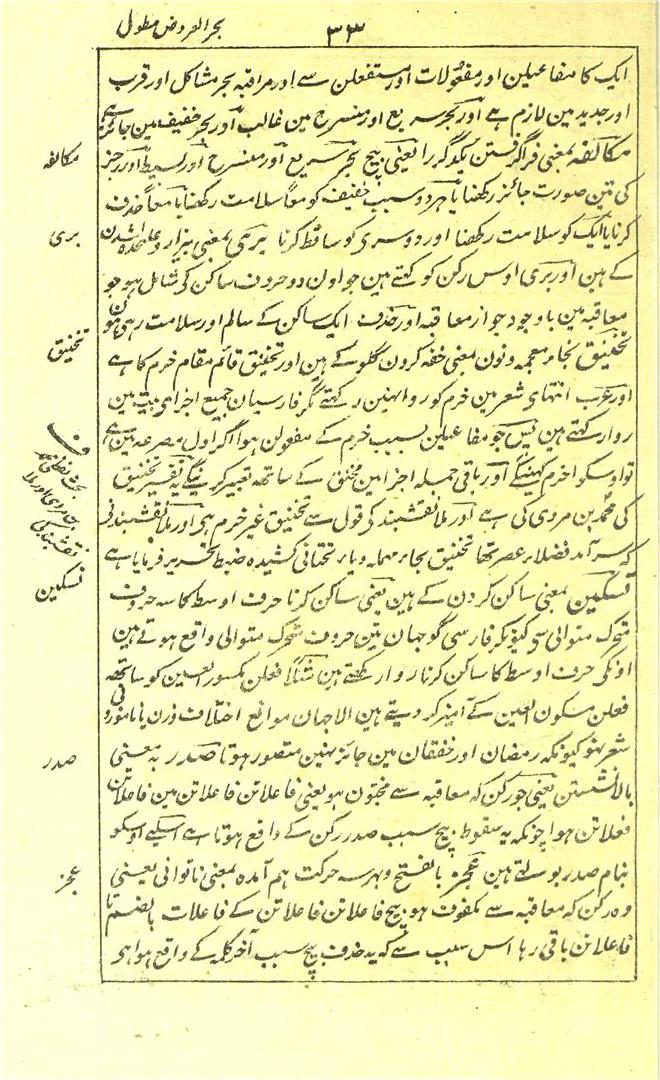 بحر العروض مطول
۳۳
ایک کا مفاعیلن اور مفعولات اور مستفعلن سے اور مراقبہ بحر مشاکل اور قرب
اور جدید مین لازم ہے اور بحر سریع اور منسرح مین غالب اور بحر خفیف مین جائز ہے
مکالفہ بمعنی فراگرفتن یکدگر را یعنی بیچ بحر سریع اور منسرح اور بسیط اور رجز
مکالفہ
کی تین صورت جائز رکھنا یا ہر دو سبب خفیف کو معاً سلامت رکھنا یا معاً حذف
کرنا یا ایک کو سلامت رکھنا اور دوسری کو ساقط کرنا بری بمعنی بیزار و علحدہ شدن
بری
کے ہین اور بری اوس رکن کو کہتے ہین جو اون دو حروف ساکن کی شامل ہو جو
معاقبہ مین باوجود جواز معاقبہ اور حذف ایک ساکن کے سالم اور سلامت رہی ہون
تخنیق بخاء معجمہ و نون بمعنی خفہ کردن گلو کے ہین اور تخنیق قائم مقام خرم کا ہے
تخنیق
اور عرب انتہای شعر مین خرم کو روا نہین رکہتے مگر فارسیان جمیع اجزای بیت مین
روا رکہتے ہین پس جو مفاعیلن بسبب خرم کے مفعولن ہوا اگر اول مصرعہ مین ہے
تو اوسکو اخرم کہینگے اور باقی جملہ اجزا مین مخنق کے ساتھ تعبیر کرینگے یہ تفسیر تخنیق
کی محمد بن مروی کی ہے اور ملا نقشبند کی قول سے تخنیق غیر خرم ہی اور ملا نقشبندنی
نقشبند کی
کہ سر آمد فضلاء عصر تھا تحنیق بحاء مہملہ و یاء تحتانی کشیدہ ضبط تحریر فرمایا ہے
تسکین بمعنی ساکن کردن کے ہین یعنی ساکن کرنا حرف اوسط کا سہ حروف
تسکین
متحرک متوالی سے کیونکر فارسی گو جہان تین حروف متحرک متوالی واقع ہوتے ہین
اونکی حرف اوسط کا ساکن کرنا روا رکھتے ہین مثلاً فعلن مکسور العین کو ساتھ
فعلن مسکون العین کے آمیز کر دیتے ہین الا جہان مواقع اختلاف وزن یا ناموزونی
شعر نہو کیونکہ رمضان اور خفقان مین جائز نہین متصور ہوتا صدر بہ معنی
صدر
بالا نشستن یعنی جو رکن کہ معاقبہ سے مخبون ہو یعنی فاعلاتن فاعلاتن مین فاعلاتن
فعلاتن ہوا چونکہ یہ سقوط بیچ سبب صدر رکن کے واقع ہوتا ہے اسلیے اوسکو
بنام صدر بولتے ہین عجز بالفتح و بہر سہ حرکت ہم آمدہ بمعنی ناتوانی یعنی
عجز
وہ رکن کہ معاقبہ سے مکفوف ہو بیچ فاعلاتن فاعلاتن کے فاعلات بالضم تا
فاعلاتن باقی رہا اس سبب سے کہ یہ حذف بیچ سبب آخر کلمہ کے واقع ہوا ہی